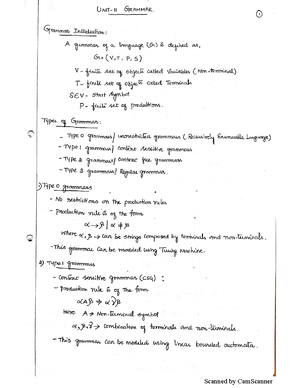 UNIT-II GRAMMAR
1
Grammar Introduction:
A grammar of a language (G) is defined as,
G = (V, T, P, S)
V - finite set of objects called Variables (Non-Terminal)
T - finite set of objects called Terminals
S∈V - Start Symbol
P - finite set of productions.
Types of Grammar:
- Type 0 grammar/ unrestricted grammar (Recursively Enumerable Language)
- Type 1 grammar/ Context sensitive grammar
- Type 2 grammar/ Context free grammar
- Type 3 grammar/ Regular grammar.
1) Type 0 grammar
- No restrictions on the production rules
- production rule is of the form
α → β | α ≠ β
where α, β → can be strings composed by terminals and non-terminals.
- This grammar can be modeled using Turing Machine.
2) Type 1 grammar
- Context sensitive grammar (CSG)
- production rule is of the form
Here A → Non-terminal symbol
→ Combination of terminals and non-terminals.
- This grammar can be modeled using linear bounded automata.
Scanned by CamScanner